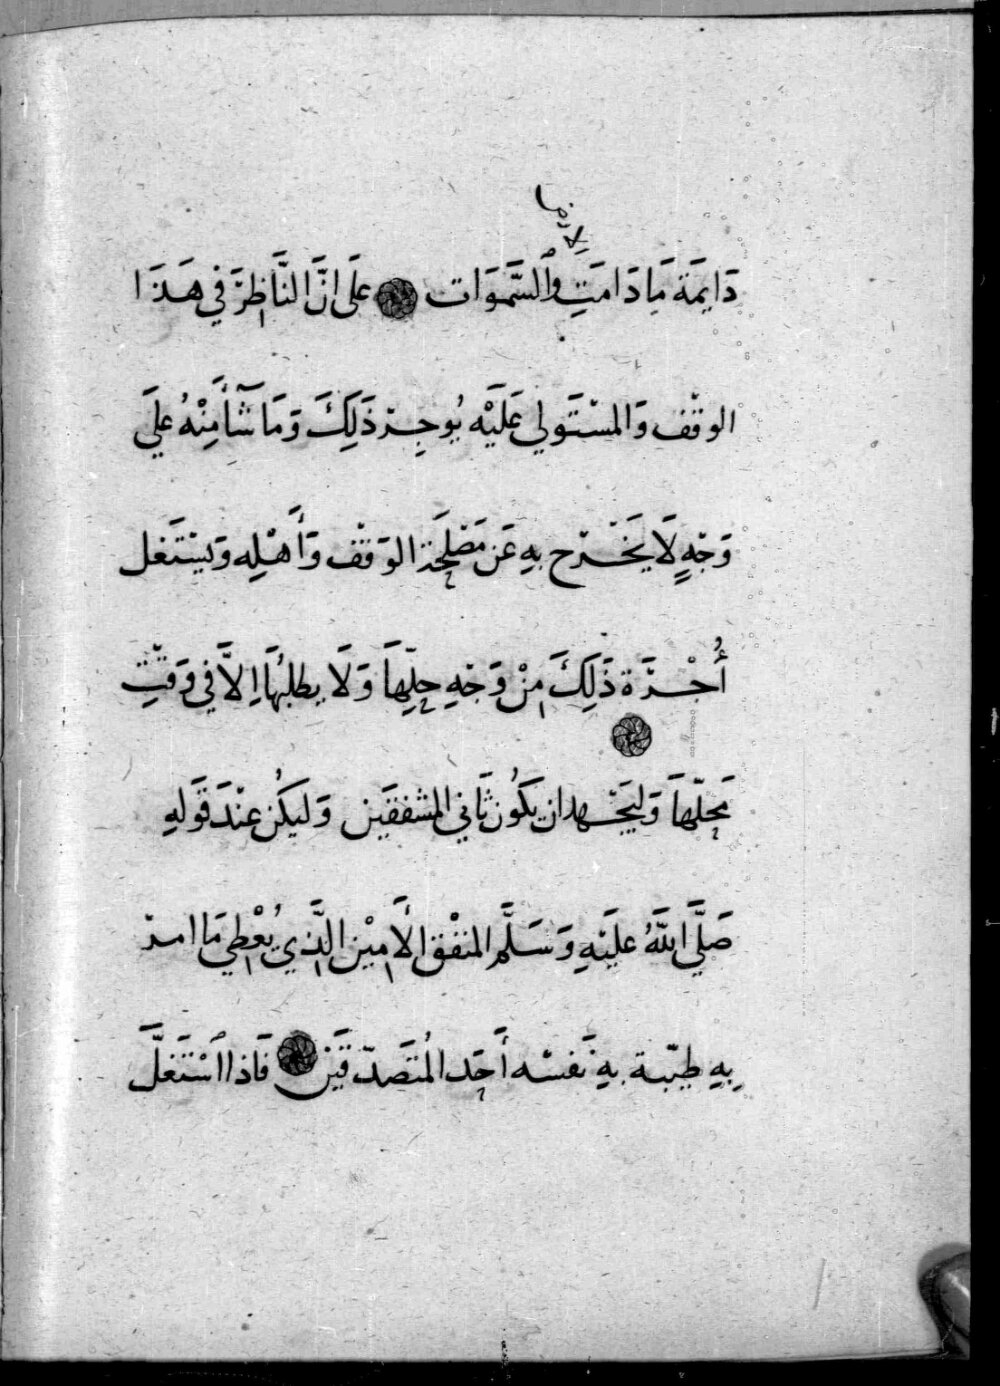 الارض
دَايِمَة مَا دَامَتِ وَالسَّمَوَات عَلَى انَّ النَّاظِرَ في هَذَا
الوقْف وَالمسْتَولي عَلَيْه يُوجِر ذَلِكَ وَمَا شَآ مِنْهُ علَي
وَجْهٍ لَا يَخْرج بهِ عَن مَصْلحَة الوَقْف وَأهْلِه وَيسْتَغل
أُجْرَة ذَلِكَ مِنْ وَجْهِ حلِّهَا وَلَا يطلبُهَا الاَّ في وَقْتِ
مَحِلّهَا وَليَجْهد ان يكُون ثَاني المشفقَين وَليكُن عنْدَ قَولهِ
صَلَّي اللَّهُ عليْهِ وَسَلَّم المنفْق الأَمِيْن الَّذي يُعْطِي مَا امر
بِهِ طيّبة بهِ نَفسْه أَحَد المُتَصَدّقَين فَاذا اسْتَغلَّ